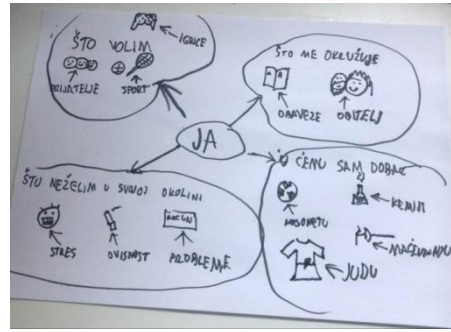 IGRICE
ŠTO VOLIM
PRIJATELJE
SPORT
ŠTO ME OKRUŽUJE
OBAVEZE
OBITELJ
JA
ŠTO NEŽELIM U SVOJOJ OKOLINI
STRES
OVISNOST
RAČUN
PROBLEME
U ČEMU SAM DOBAR
NOGOMETU
KEMIJI
MAČEVANJU
JUDU